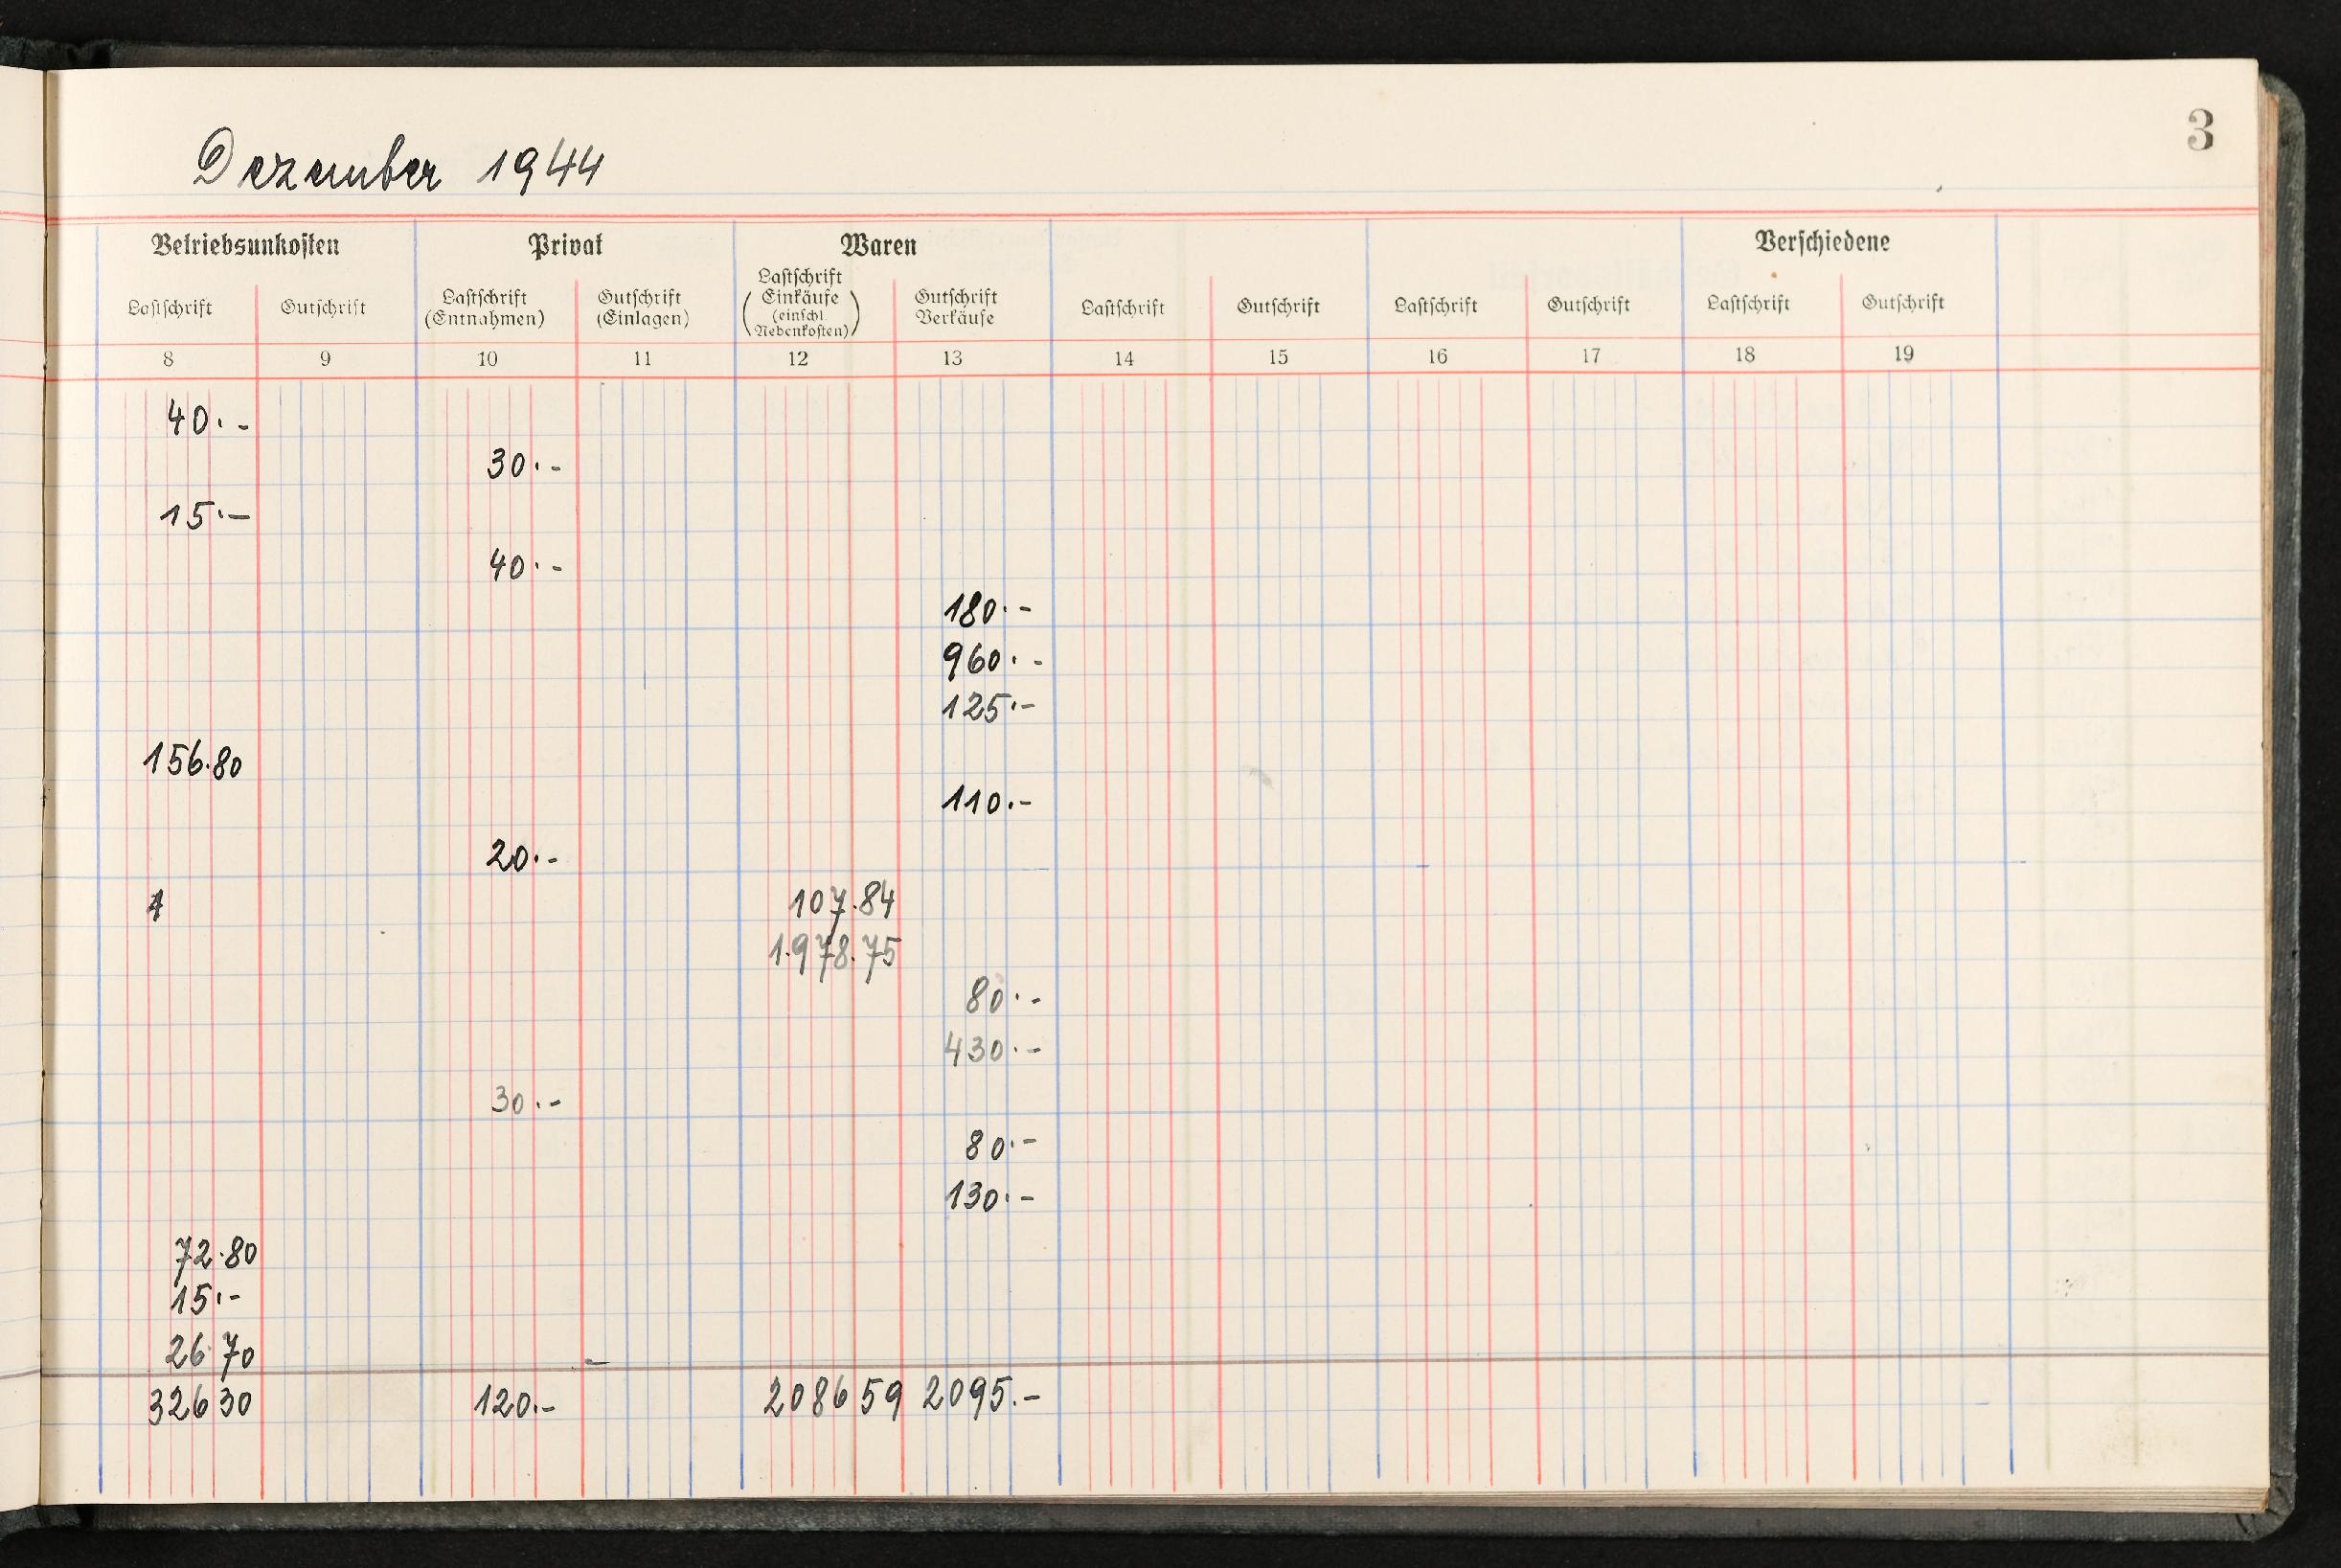 3
Dezember 1944
Betriebsunkosten Privat Waren Verschiedene
Lastschrift Gutschrift Lastschrift (Entnahmen) Gutschrift (Einlagen) Lastschrift (Einkäufe (einschl. Nebenkosten)) Gutschrift Verkäufe Lastschrift Gutschrift Lastschrift Gutschrift Lastschrift Gutschrift
8 9 10 11 12 13 14 15 16 17 18 19
40.-
30.-
15.-
40.-
180.-
960.-
125.-
156.80
110.-
20.-
107.84
1.978.75
80.-
430.-
30.-
80.-
130.-
72.80
15.-
26.70
326 30 120.- 2086 59 2095.-